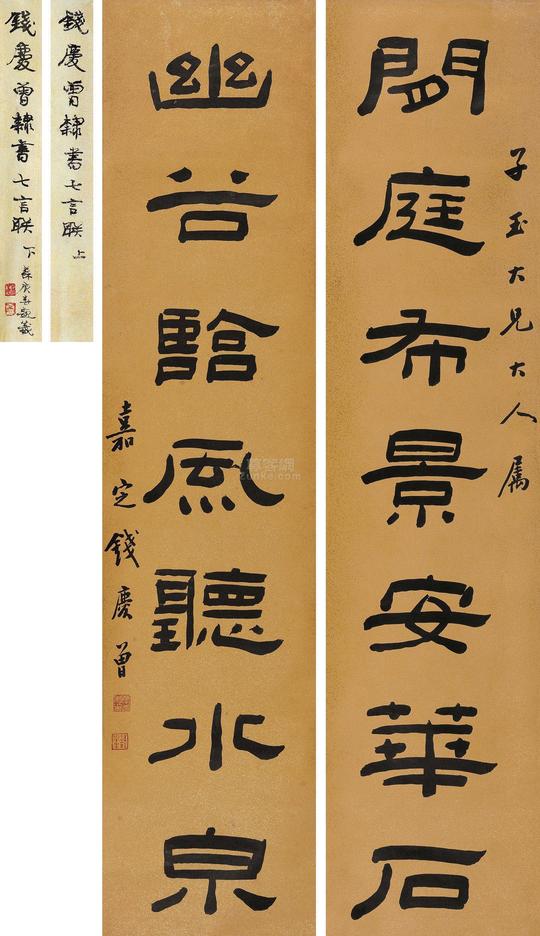 子玉大兄大人属
閒庭希景安華石
幽谷風聽水泉
嘉定錢慶曾
錢慶曾隸書七言聯 上
錢慶曾隸書七言聯 下
zunke.com